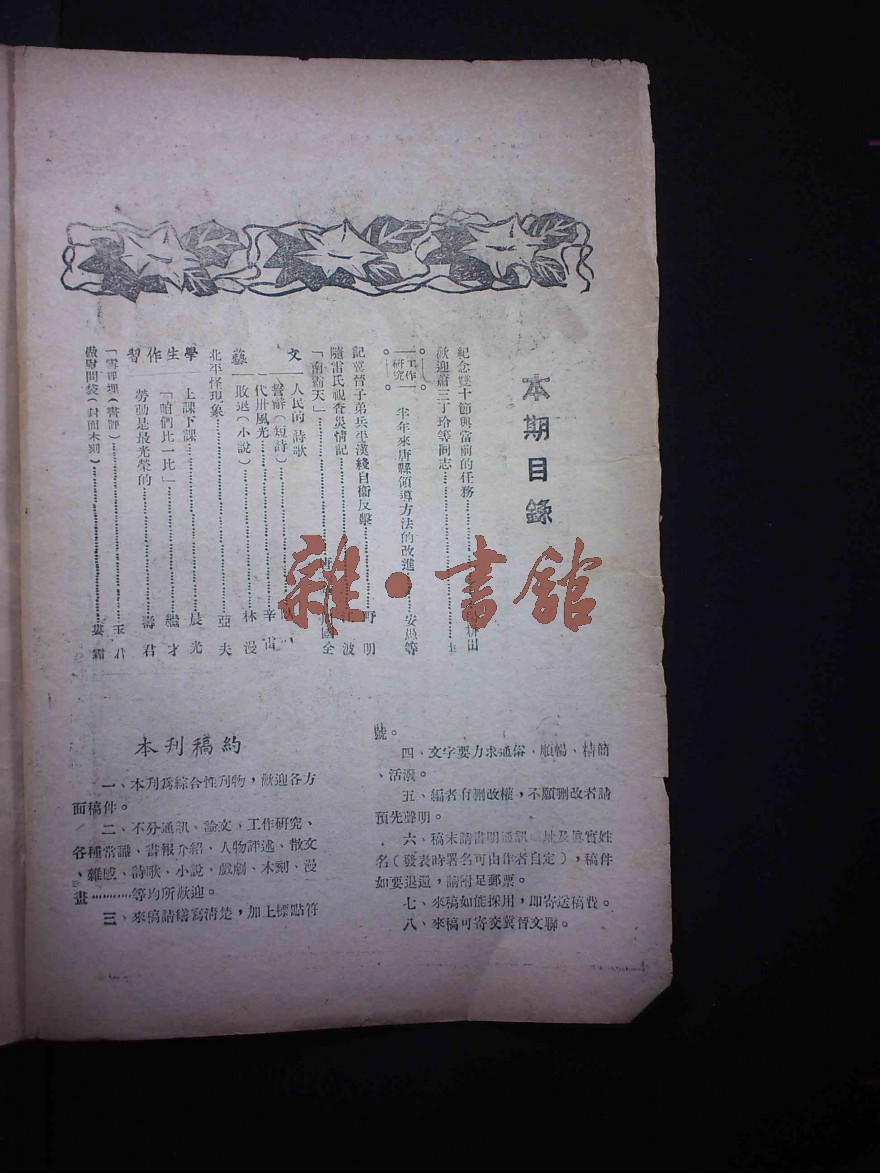 本期目錄
紀念雙十節與當前的任務
歡迎蕭三丁玲等同志
工作研究
半年來唐縣領導方法的改進 安愚等
記冀晉子弟兵平漢綫自衞反擊 野明
隨雷氏視查災情記 波
「南霸天」 全
文藝
人民的詩歌
誓辭(短詩)
代卅風光 辛雷
敗退(小說) 林漫
北平怪現象 亞夫
學生作習
上課下課 晨光
「咱們比一比」 繼才
勞動是最光榮的 壽君
(書評) 玉君
做慰問袋(封面木刻) 婁霜
雜·書館
本刊稿約
一、本刊爲綜合性刊物,歡迎各方
面稿件。
二、不分通訊、論文、工作研究、
各種常識、書報介紹、人物評述、散文
、雜感、詩歌、小說、戲劇、木刻、漫
畫…………等均所歡迎。
三、來稿請繕寫清楚,加上標點符
號。
四、文字要力求通俗、順暢、精簡
、活潑。
五、編者有删改權,不願删改者請
預先聲明。
六、稿末請書明通訊 址及眞實姓
名(發表時署名可由作者自定),稿件
如要退還,請附足郵票。
七、來稿如能採用,即寄送稿費。
八、來稿可寄交冀晉文聯。